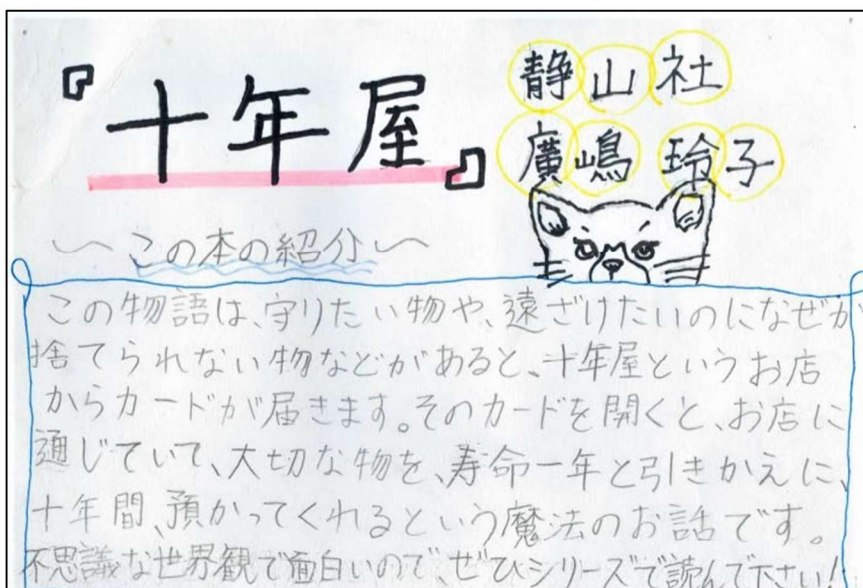 『十年屋』
静山社
廣嶋 玲子
～この本の紹介～
この物語は、守りたい物や、遠ざけたいのになぜか
捨てられない物などがあると、十年屋というお店
からカードが届きます。そのカードを開くと、お店に
通じていて、大切な物を、寿命一年と引きかえに、
十年間、預かってくれるという魔法のお話です。
不思議な世界観で面白いので、ぜひシリーズで読んで下さい!